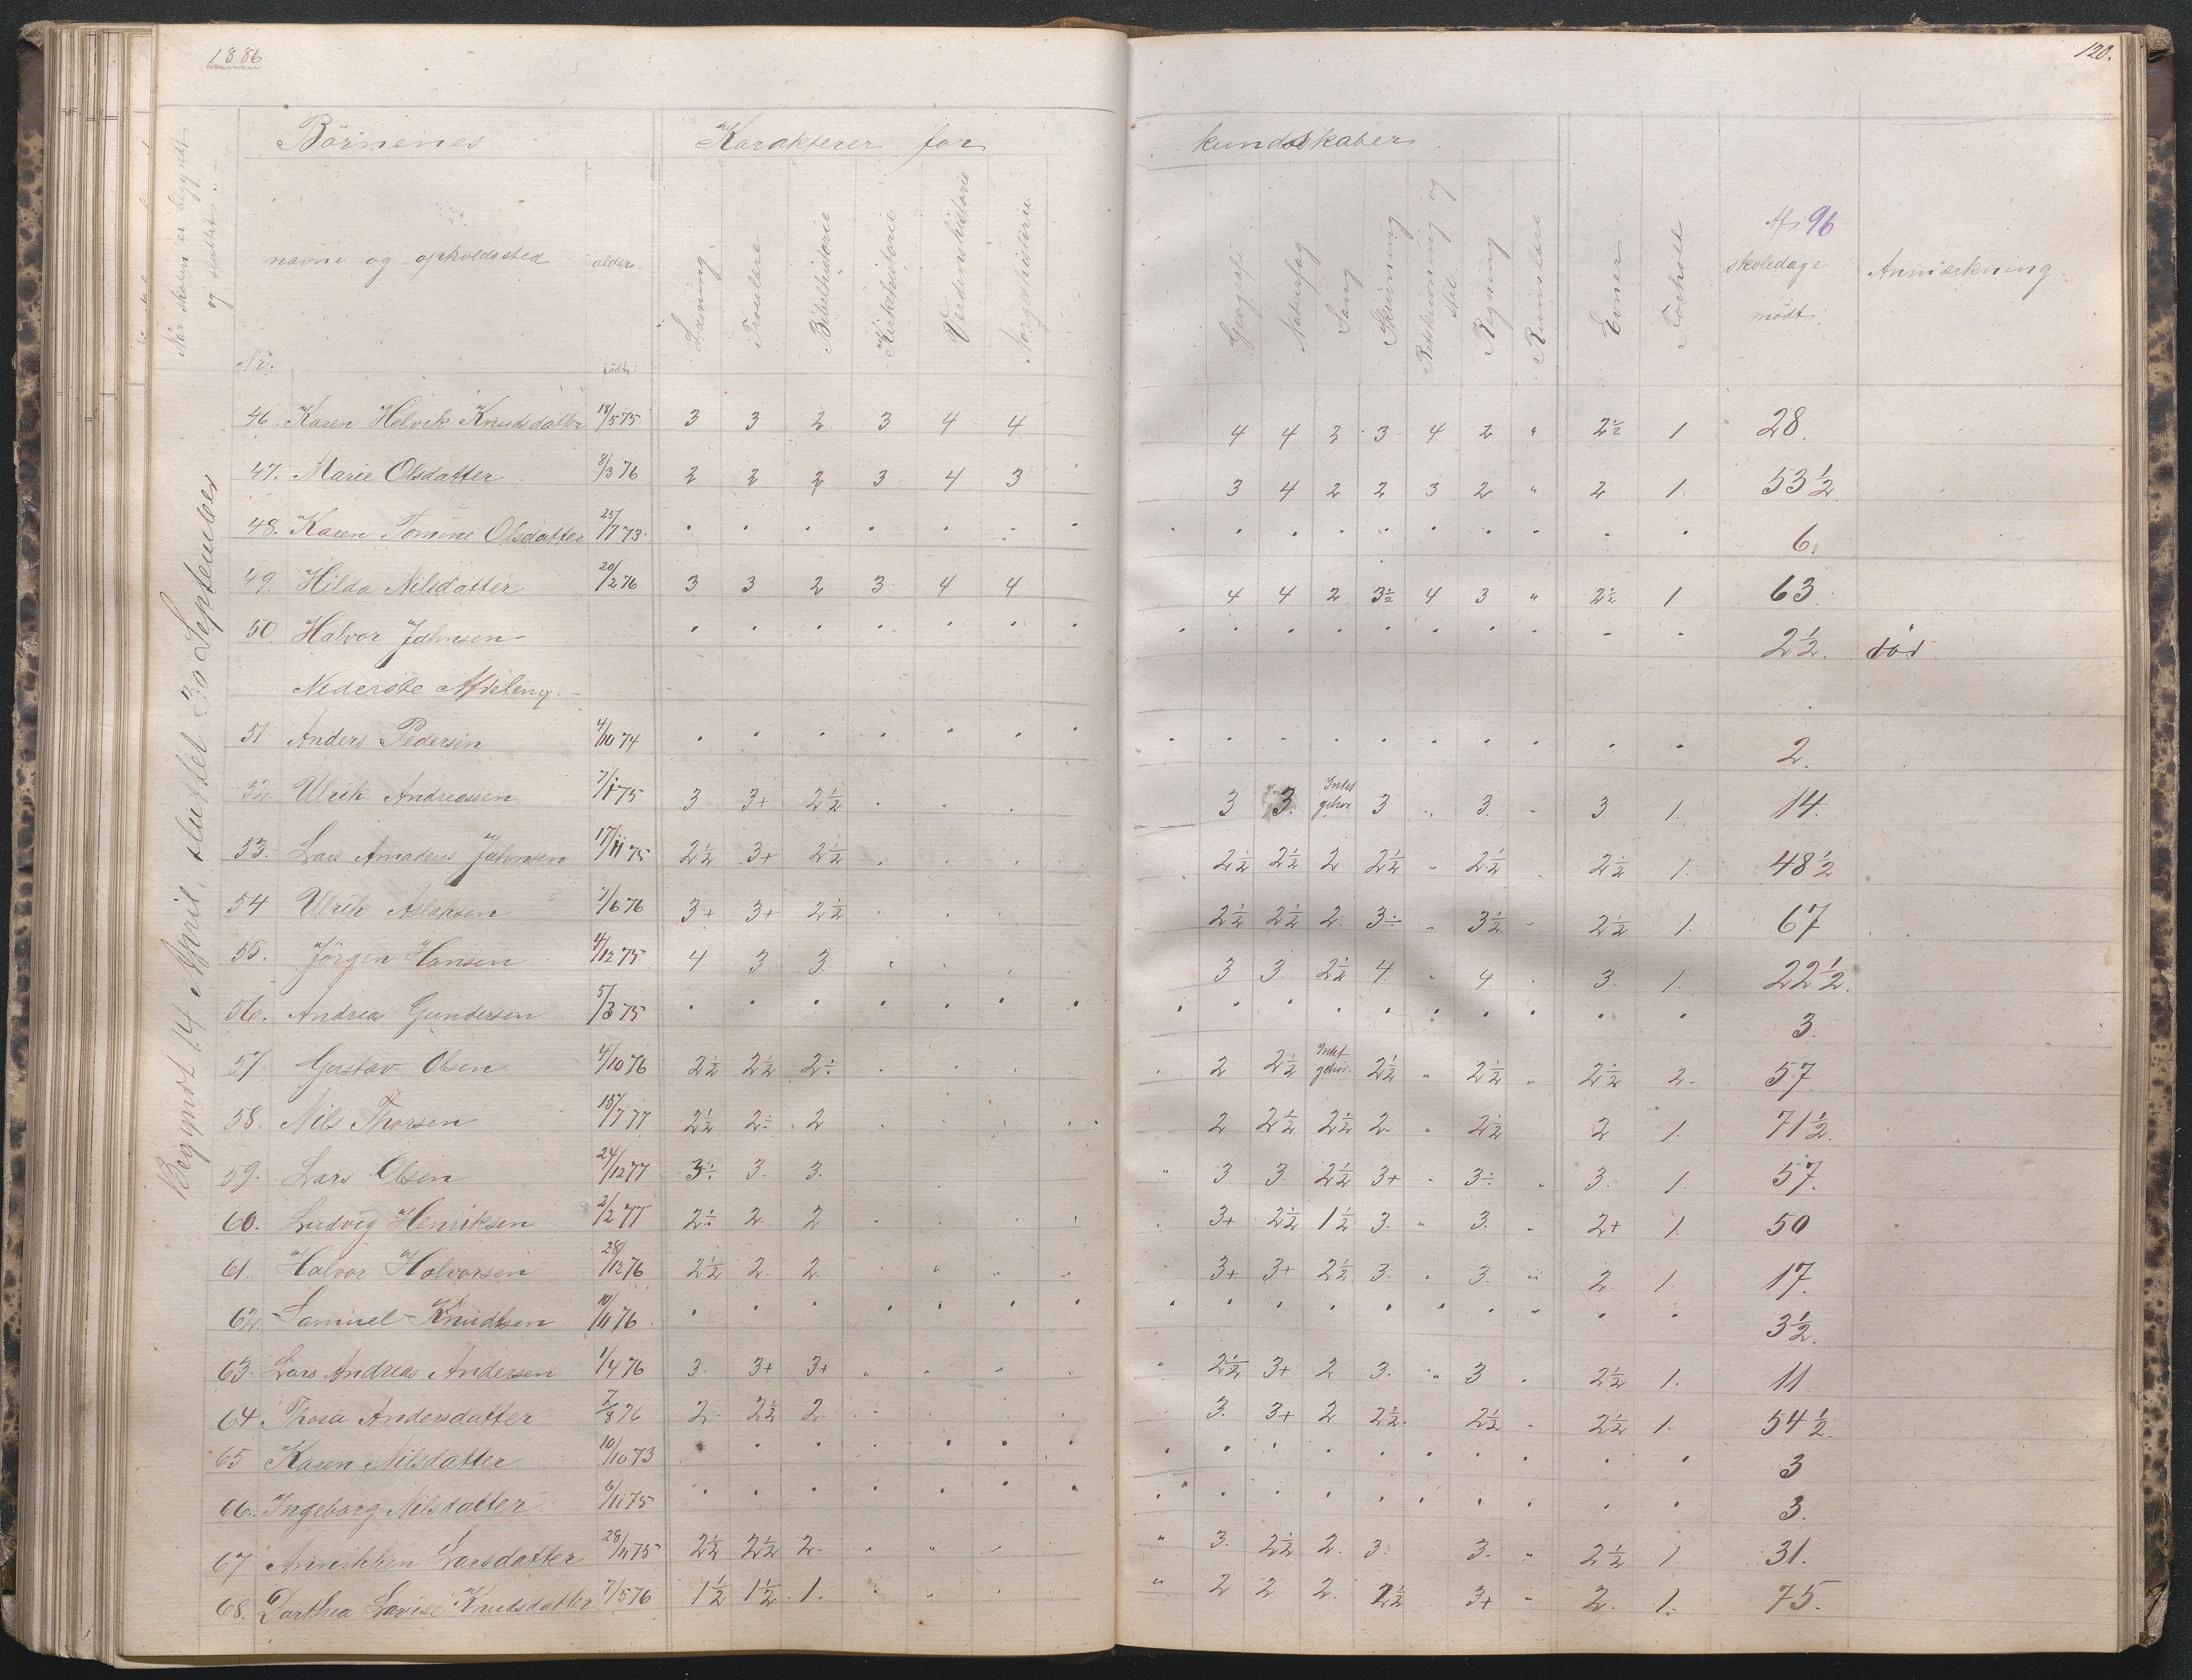 1886
120.
Börnenes
Karakterer for
kundskaber
Når skolen er begyndt og sluttet
Nr.
navne og opholdssted
alder
født
Læsning
Troeslære
Bibelhistorie
Kirkehistorie
Verdenshistorie
Norgeshistorie
Geografi
Naturfag
Sang
Skrivning
Retskrivning og stil
Regning
Rumslære
Evner
Forhold
Af 96 skoledage mødt
Anmærkning.
Begyndt 14 April, sluttet 30 September
46. Karen Helvik Knudsdatter 18/5 75 3 3 2 3 4 4 4 4 3 3 4 2 " 2½ 1 28.
47. Marie Olsdatter 8/3 76 2 2 2 3 4 3 3 4 2 2 3 2 " 2 1 53½.
48. Karen Tomine Olsdatter 25/7 73 6.
49. Hilda Nilsdatter 20/2 76 3 3 2 3 4 4 4 4 2 3½ 4 3 " 2½ 1 63
50. Halvor Jahnsen 2½. död
Nederste Afdeling.
51 Anders Pedersen 4/10 74 2.
52. Ulrik Andreassen 7/1 75 3 3+ 2½ 3 3. Intet gehør 3 3. 3 1. 14.
53. Lars Amadeus Jahnsen 17/11 75 2½ 3+ 2½ 2½ 2½ 2 2½ 2½ 2½ 1. 48½
54 Ulrik Aslaksen 7/6 76 3+ 3+ 2½ 2½ 2½ 2. 3÷ 3½ 2½ 1. 67
55. Jörgen Hansen 4/12 75 4 3 3 3 3 2½ 4 4. 3. 1. 22½.
56. Andreas Gundersen 5/3 75 3.
57 Gustav Olsen 4/10 76 2½ 2½ 2÷ 2 2½ Intet gehør. 2½ 2½ 2½ 2. 57
58. Nils Thorsen 15/7 77 2½ 2÷ 2 2 2½ 2½ 2. 2½ 2 1. 71½.
59. Lars Olsen 24/12 77 3÷ 3. 3. 3 3 2½ 3+ 3÷ 3. 1. 57.
60. Ludvig Henriksen 2/2 77 2÷ 2. 2 3+ 2½ 1½ 3. 3. 2+ 1. 50
61. Halvor Halvorsen 28/12 76 2½ 2. 2. 3+ 3+ 2½ 3. 3. 2. 1. 17.
62. Samuel Knudsen 10/11 76 3½.
63. Lars Andreas Andersen 1/4 76 3. 3+ 3+ 2½ 3+ 2 3. 3 2½ 1. 11
64 Thora Andersdatter 7/8 76 2. 2½ 2. 3. 3+ 2 2½. 2½ 2½ 1. 54½.
65 Karen Nilsdatter 10/10 73 3
66. Ingeborg Nilsdatter 6/11 75 3.
67 Annikken Larsdatter 28/11 75 2½ 2½ 2. 3. 2½ 2. 3. 3. 2½ 1. 31.
68. Darthea Lovise Knudsdatter 7/5 76 1½ 1½ 1. 2 2 2. 2½ 3+ 2. 1. 75.